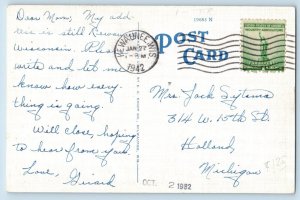 Dear Mom, My add
ress is still Kewaunee
Wisconsin. Please
write and let me
know how every
thing is going.
Will close, hoping
to hear from you.
Love, Girard
KEWAUNEE, WIS.
JAN 27
PM
1942
POST
CARD
Mrs. Jack Sytsma
314 W. 10th St.
Holland,
Michigan
OCT. 2 1982